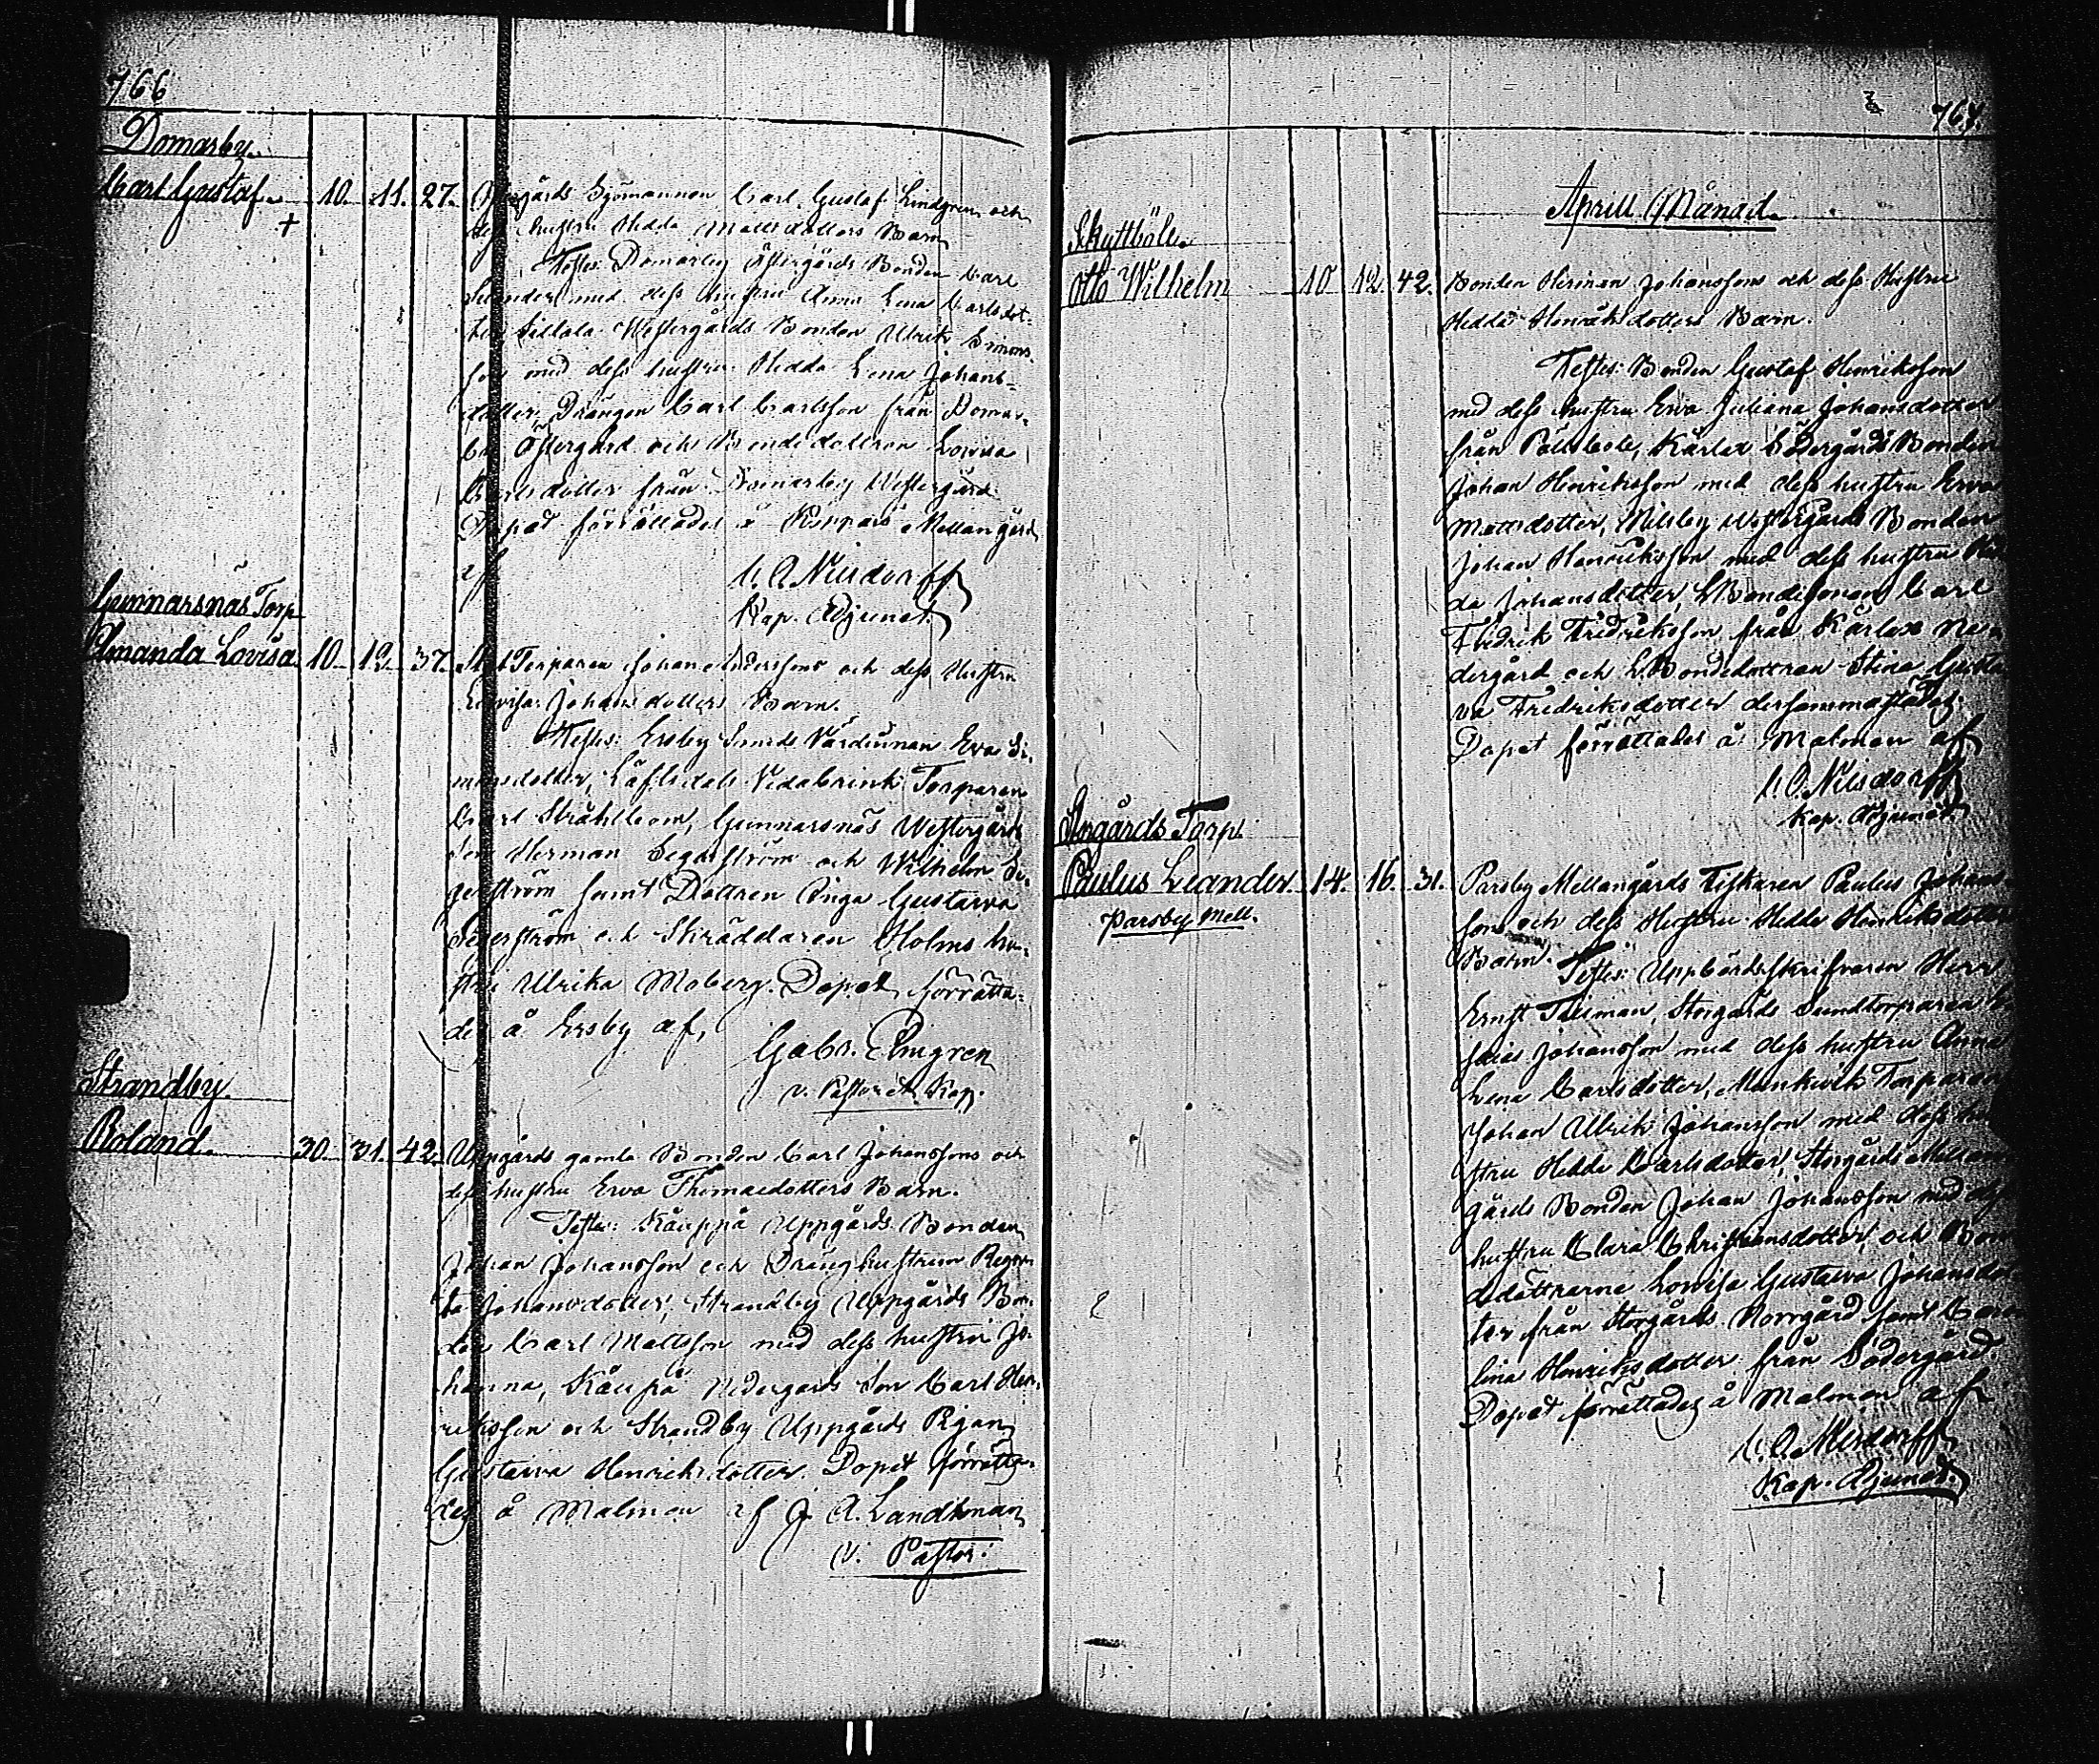 766
Domarby.
Carl Gustaf. 10. 11. 27. Sjömannen Carl Gustaf Lindgrens och
dess hustru Hedda Mattsdotters Barn
Testes: Domarby Östergårds Bonden Carl
med dess hustru Anna Lena Carlsdot-
ter Sillala Westergårds Bonden Ulrik Simons-
son med dess hustru Hedda Lena Johans-
dotter, Drängen Carl Carlsson från Domar-
by Östergård och Bondedottren Lovisa
Carlsdotter från Domarby Westergård.
Dopet förrättades å Mellangård
af
C. O. Neisdorff
Kap. Adjunct.
Gunnarsnäs Torp
Amanda Lovisa. 10. 12. 37. Torparen Johan Anderssons och dess Hustru
Lovisa Johansdotters Barn.
Testes: Ersby Smeds Värdinnan Eva Si-
monsdotter, Torparen
Carl Ståhlbom, Gunnarsnäs Westergårds
Son Herman Segerström och Wilhelm Se-
gerström samt Dottren Inga Gustava
Segerström och Skräddaren Holms hu-
stru Ulrika Moberg. Dopet förrätta-
des å Ersby af,
Gabr. Elmgren
v. Pastor et Kap.
Strandby.
Roland. 30. 31. 42. Uppgårds gamla Bonden Carl Johanssons och
dess hustru Eva Thomasdotters Barn.
Testes: Käuppå Uppgårds Bonden
Johan Johansson och Dränghustrun
Johansdotter, Strandby Uppgårds Bon-
den Carl Mattsson med dess hustru Jo-
hanna, Käupå Nedergårds Son Carl Hen-
riksson och Strandby Uppgårds Pigan
Gustava Henriksdotter. Dopet förrätta-
des å Malmen af J. A. Landtman
v. Pastor.
767
Aprill Månad.
Skyttböle.
Otto Wilhelm 10. 12. 42. Bonden Herman Johanssons och dess Hustru
Hedda Henriksdotters Barn.
Testes: Bonden Gustaf Henriksson
med dess hustru Eva Juliana Johansdotter
från Pällsböle, Kärlax Södergårds Bonden
Johan Henriksson med dess hustru Eva
Mattsdotter, Wilsby Westergårds Bonden
Johan Henriksson med dess hustru Hed-
da Johansdotter, Bondesonen Carl
Fredrik Fredriksson från Kärlax Ne-
dergård och Bondedottran Stina Gusta
va Fredriksdotter dersammastädes.
Dopet förrättades å Malmen af
C. O. Neisdorff
Kap. Adjunct.
Storgårds Torp.
Paulus Leander. 14. 16. 31. Parsby Mellangårds Fiskaren Paulus Johans-
Parsby Mell.
sons och dess Hustru Hedda Henriksdotters
Barn. Testes: Uppbördsskrifvaren Herr
Ernst Storgårds Sundtorparen
Johansson med dess hustru Anna
Lena Carlsdotter, Munkvik Torparen
Johan Ulrik Johansson med dess hu-
stru Hedda Carlsdotter, Storgårds Mellan-
gårds Bonden Johan Johansson med dess
hustru Clara Christiansdotter, och Bon-
dedöttrarne Lovisa Gustava Johansdot-
ter från Storgårds Norrgård samt Caro-
lina Henriksdotter från Södergård.
Dopet förrättades å Malmen af
C. O. Neisdorff
Kap. Adjunct.